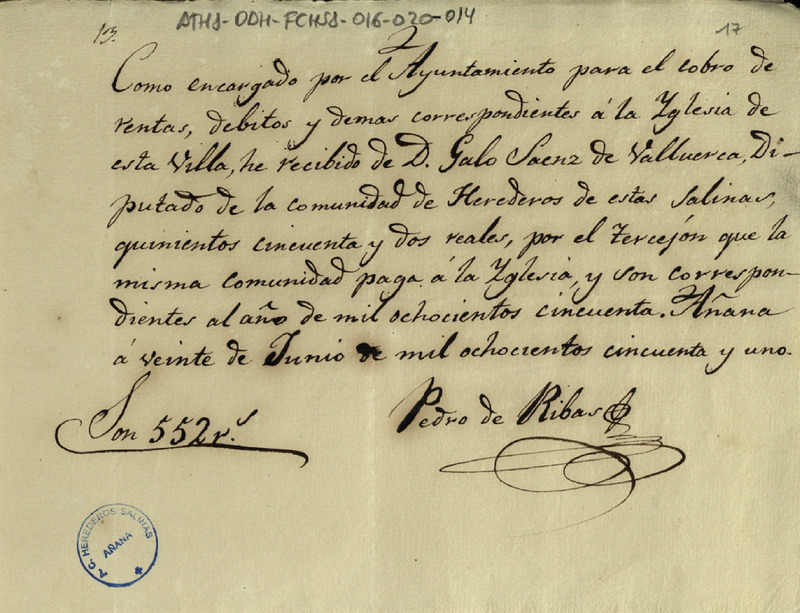 ATHA-DAH-FCHSA-016-020-014
13.
17
2
Como encargado por el Ayuntamiento para el cobro de
rentas, debitos y demas correspondientes á la Yglesia de
esta Villa, he recibido de D. Galo Saenz de Valluerca, Di-
putado de la comunidad de Herederos de estas Salinas,
quinientos cincuenta y dos reales, por el tercejón que la
misma comunidad paga á la Yglesia, y son correspon-
dientes al año de mil ochocientos cincuenta. Añana
á veinte de Junio de mil ochocientos cincuenta y uno.
Pedro de Ribas
Son 552 r.s
P. G. HEREDEROS SALINAS
AÑANA